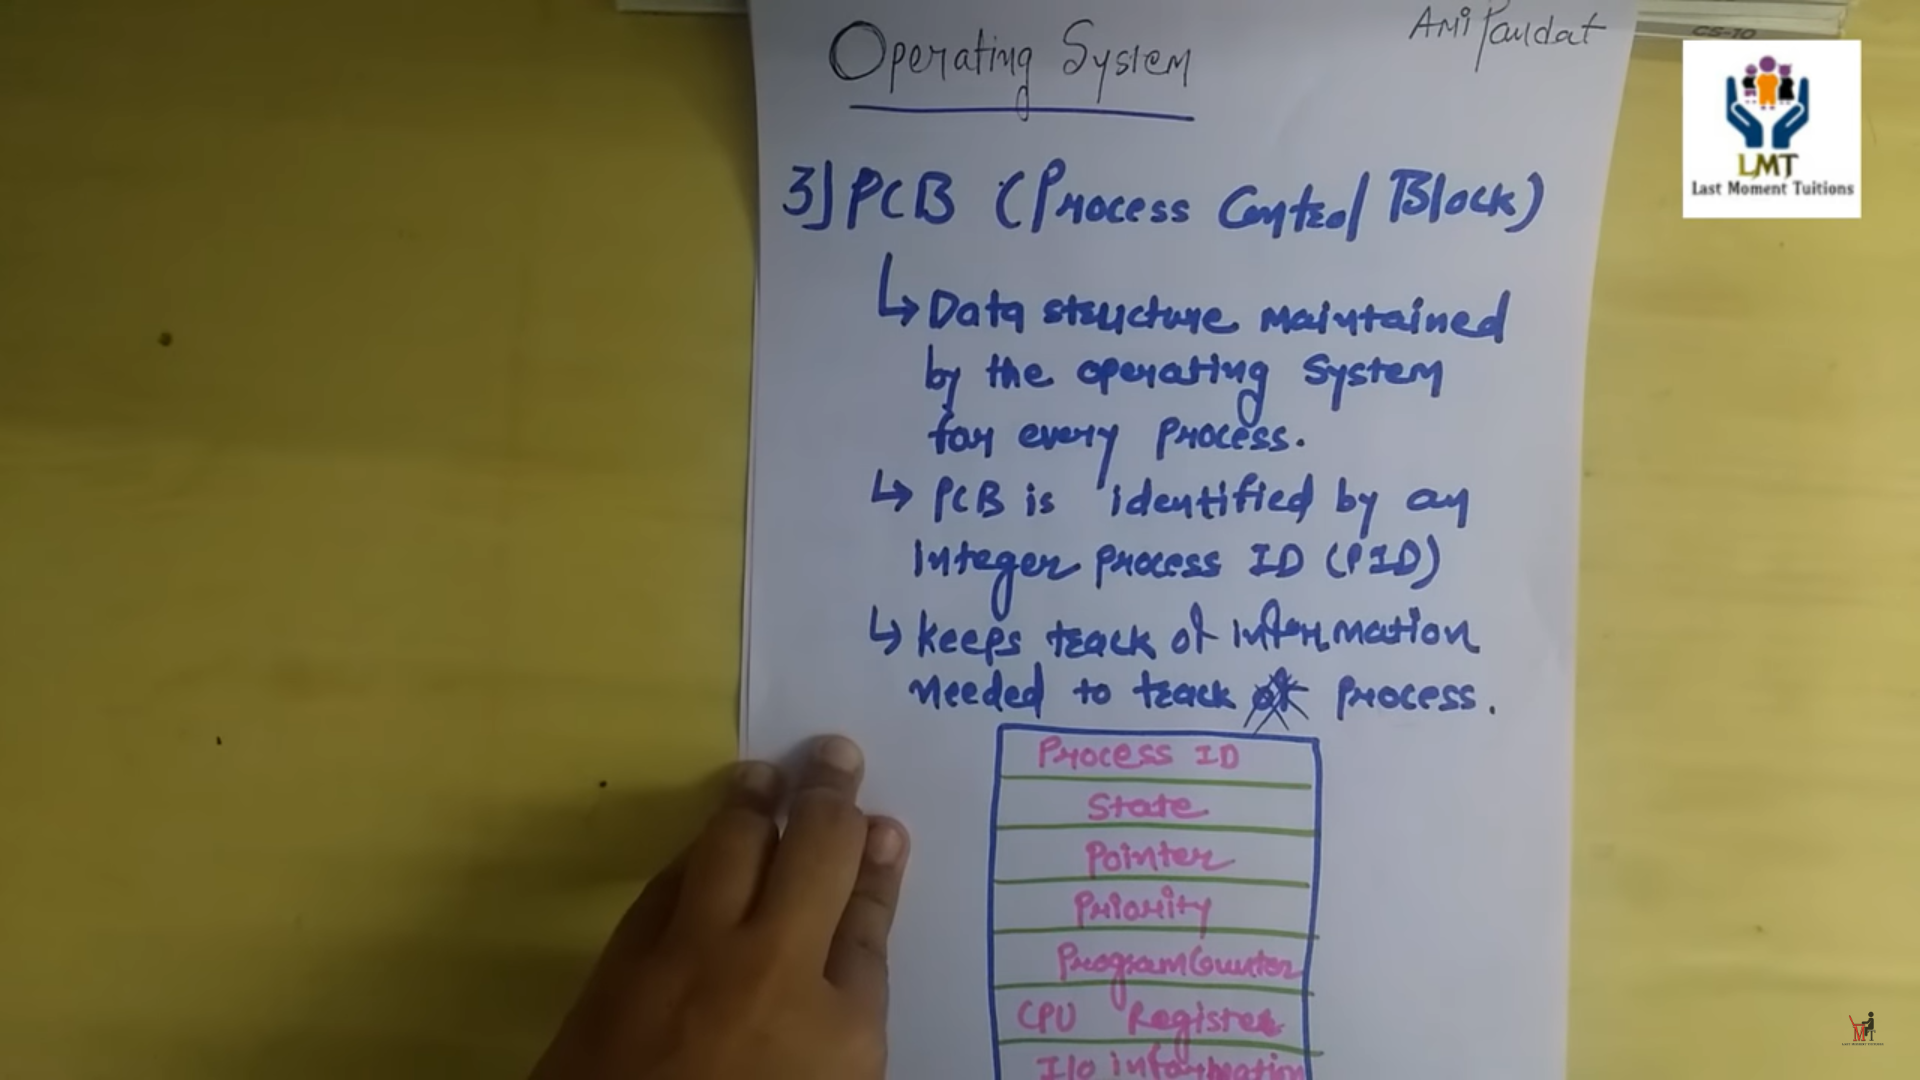 Operating System
Ami Pandat
CS-10
LMT
Last Moment Tuitions
3] PCB (Process Control Block)
↳ Data structure maintained
by the operating system
for every process.
↳ PCB is identified by an
integer process ID (PID)
↳ keeps track of information
needed to track process.
Process ID
State
Pointer
Priority
Program Counter
CPU Register
I/O information